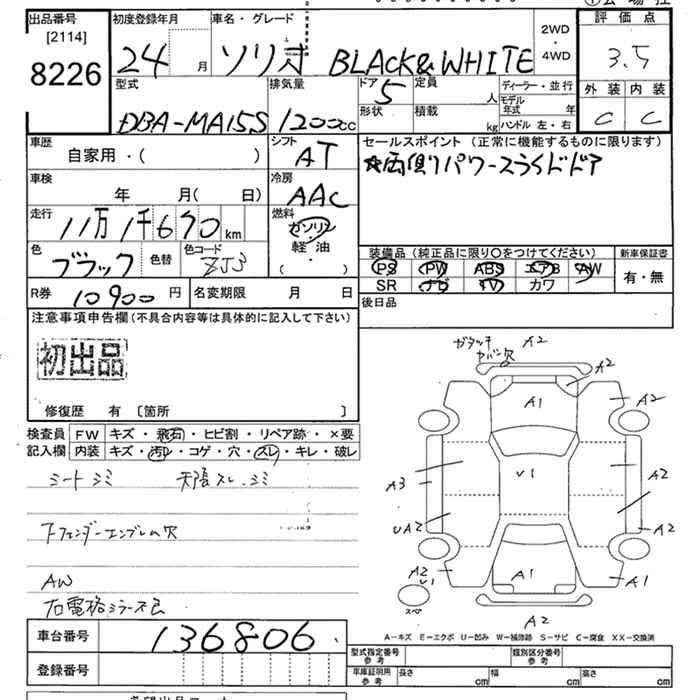 出品番号
[2114]
8226
初度登録年月
24 月
車名・グレード
ソリオ BLACK&WHITE
2WD
・
4WD
評価点
3.5
外装 内装
C C
型式
DBA-MA15S
排気量
1200cc
ドア
5
形状
定員
人
積載
kg
ディーラー・並行
モデル年式 年
ハンドル 左・右
車歴
自家用・( )
シフト
AT
車検
年 月( 日)
冷房
AAC
走行
11万1千670km
燃料
ガソリン
・
軽油
・
( )
色
ブラック
色替
色コード
ZJ3
R券
10900円
名変期限 月 日
セールスポイント(正常に機能するものに限ります)
☆両側パワースライドドア
装備品(純正品に限り○をつけてください)
PS PW ABS エアB AW
SR ナビ TV カワ
新車保証書
有・無
後日品
注意事項申告欄(不具合内容等は具体的に記入して下さい)
初出品
修復歴 有 〔箇所 〕
検査員記入欄
FW キズ・飛石・ヒビ割・リペア跡・×要
内装 キズ・汚レ・コゲ・穴・スレ・キレ・破レ
シートシミ 天張スレ、シミ
Fフェンダーエンブレム穴
AW
右電格ミラー不良
ガタッチ
カバー欠
A2
A2
A1
A2
A3
V1
A2
UA2
A2
A2
V1
A1
A1
スペア
A2
A-キズ E-エクボ U-凹み W-補修跡 S-サビ C-腐食 XX-交換済
車台番号
136806
登録番号
型式指定番号
参考
類別区分番号
参考
車庫証明用
参考
長さ cm
幅 cm
高さ cm